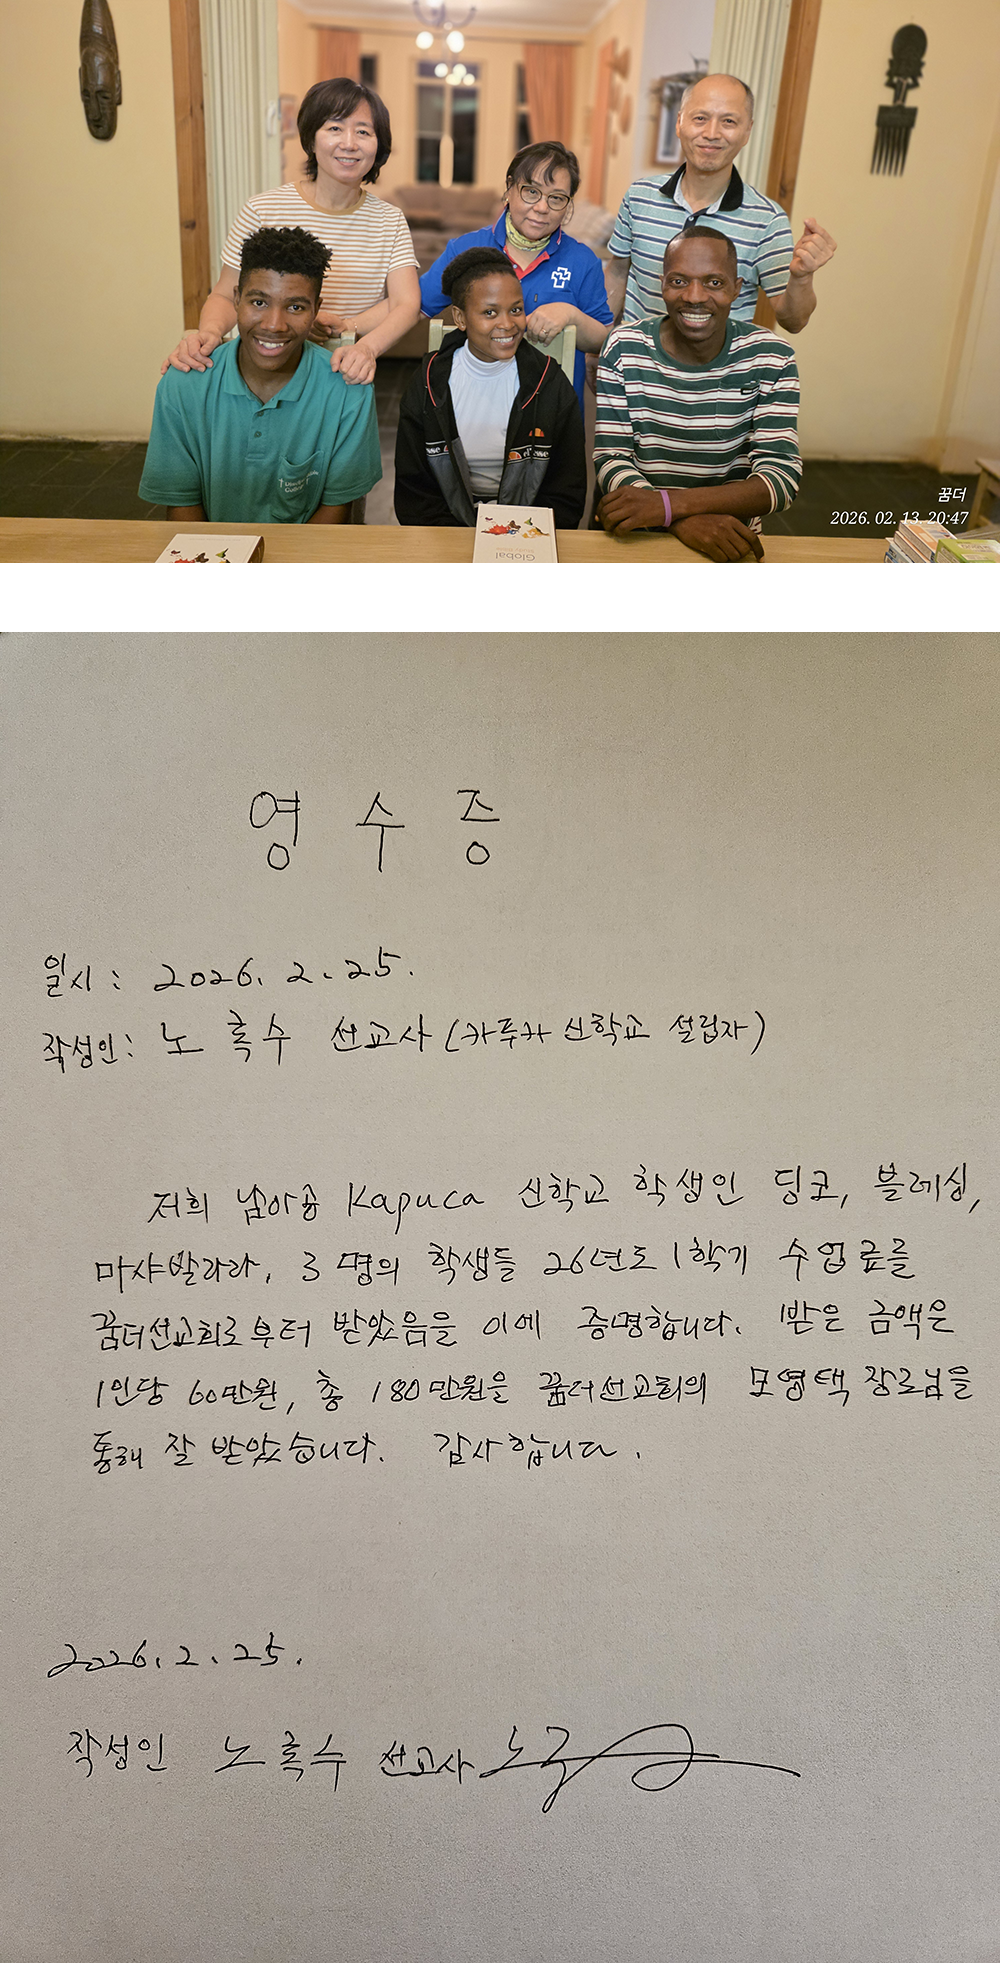 꿈더
2026. 02. 13. 20:47
Global
영 수 증
일시 : 2026. 2. 25.
작성인 : 노 록수 선교사 (카푸카 신학교 설립자)
저희 남아공 Kapuca 신학교 학생인 딩코, 블레싱,
마샤발라라, 3명의 학생들 26년도 1학기 수업료를
꿈더선교회로부터 받았음을 이에 증명합니다. 받은 금액은
1인당 60만원, 총 180만원을 꿈더선교회의 모영택 장로님을
통해 잘 받았습니다. 감사합니다.
2026. 2. 25.
작성인 노록수 선교사